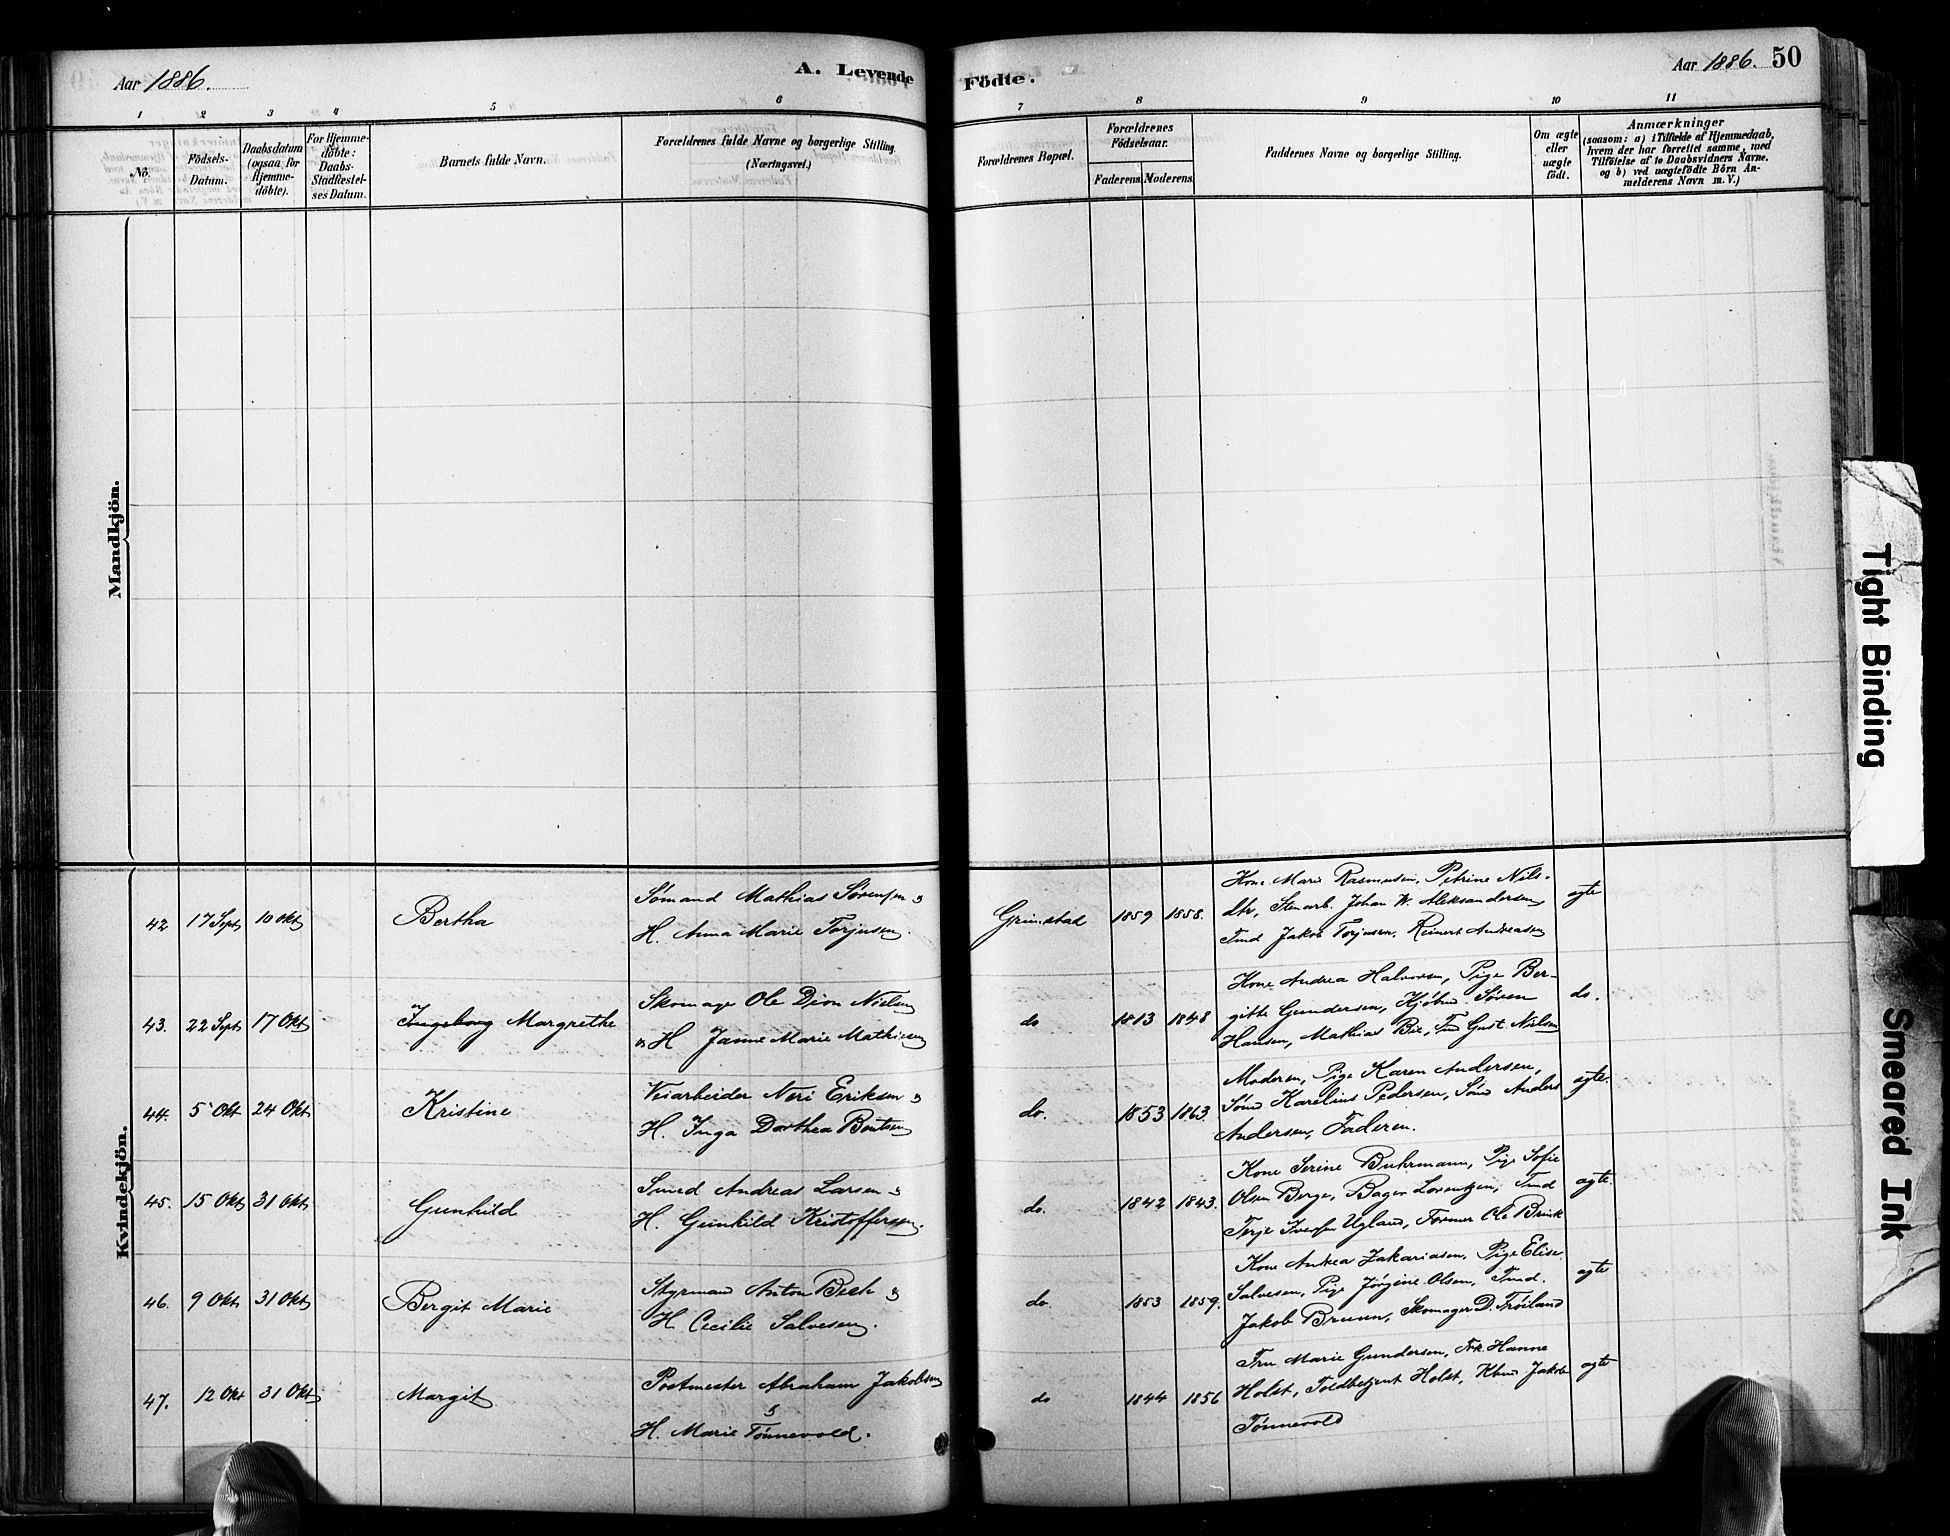 Aar 1886.
A. Levende Födte.
Aar 1886. 50
1 2 3 4 5 6 7 8 9 10 11
No.
Födsels-Datum.
Daabsdatum (ogsaa för Hjemme-döbte).
For Hjemme-döbte: Daabs-Stadfæstel-ses Datum.
Barnets fulde Navn.
Forældrenes fulde Navne og borgerlige Stilling (Næringsvei.)
Forældrenes Bopæl.
Forældrenes Födselsaar.
Faderens. Moderens.
Faddernes Navne og borgerlige Stilling.
Om ægte eller uægte födt.
Anmærkninger
(saasom: a) i Tilfælde af Hjemmedaab,
hvem der har forrettet samme, med
Tilföielse af to Daabsvidners Navne.
og b) ved uægtefödte Börn An-
melderens Navn m. V.)
Mandkjön.
Kvindekjön.
42 17 Sept 10 Okt Bertha
Sömand Mathias Sörensen &
H. Anna Marie Torjusen.
Grimstad 1859 1858.
Kone Marie Rasmusen, Petrine Nils-
dtr, Stenarb. Johan W. Aleksandersen,
Tmd Jakob Torjusen, Reinert Andreasen
ægte
43. 22 Sept 17 Okt Ingeborg Margrethe
Skomager Ole Dion Nielsen
& H Janne Marie Mathisen
do 1813 1848
Kone Andrea Halvorsen, Pige Ber-
gitte Gundersen, Kjøbmd Søren
Hansen, Mathias Bie, Tmd Gust. Nielsen
do.
44. 5 Okt 24 Okt Kristine
Veiarbeider Neri Eriksen &
H. Inga Dorthea Bentsen
do. 1853 1863
Moderen, Pige Karen Andersen,
Sömd Karelius Pedersen, Sömd Anders
Andersen, Faderen.
ægte.
45. 15 Okt 31 Okt Gunhild
Smed Andreas Larsen &
H. Gunhild Kristoffersen.
do. 1842 1843.
Kone Serine Buhrmann, Pige Sofie
Olsen Berge, Bager Lorentzen, Tmd
Terje Iversen Ugland, Former Ole Brink
ægte.
46. 9 Okt 31 Okt Bergit Marie
Styrmand Anton Bech &
H Cecilie Salvesen.
do. 1853 1859.
Kone Andrea Zakariasen, Pige Elise
Salvesen, Pige Jörgine Olsen, Tmd.
Jakob Bruun, Skomager D. Fröiland
ægte
47. 12 Okt 31 Okt Margit
Postmester Abraham Jakobsen
&
H. Marie Tönnevold.
do 1844 1856
Fru Marie Gundersen, Frk Hanne
Holst, Toldbetjent Holst, Kbmd Jakob
Tönnevold
ægte
Tight Binding
Smeared Ink